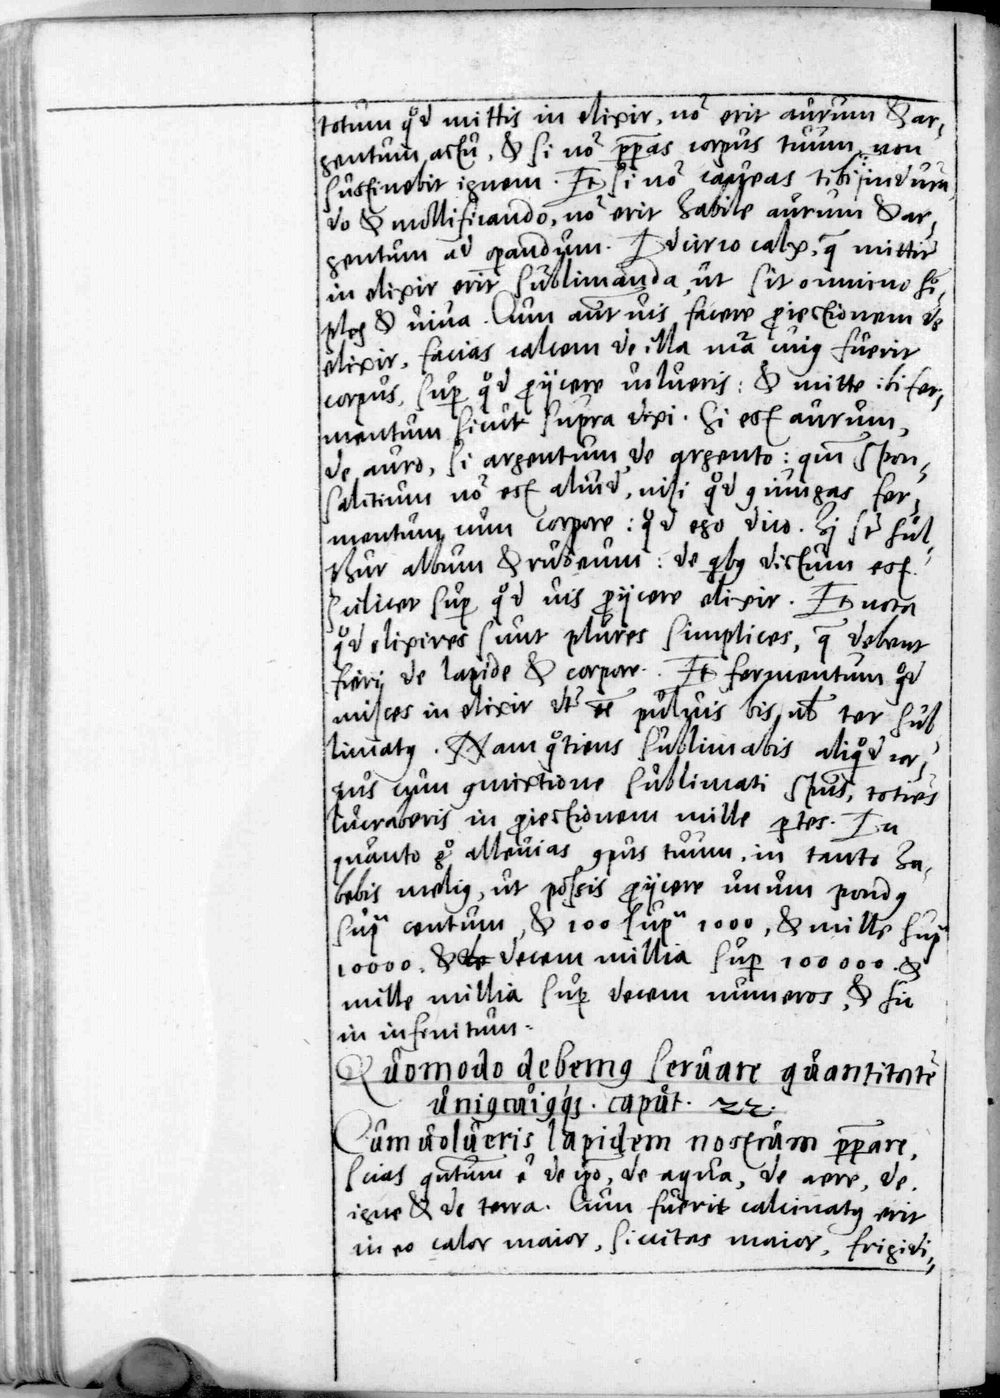 totum qd mittis in elixir, nō erit aurum & ar,
gentum actu, & si nō ꝑpas corpus tuum, non
sustinebit ignem. Et si nō caveas tibi indura
do & mollificando, nō erit habile aurum & ar,
gentum ad opandum. Idcirco calx, q̄ mittit̄
in elixir erit sublimanda, ut sit omnino si,
plex & viva. Cum aut vis facere ꝓiectionem de
elixir, facias calcem de illa mā cuiꝰ fuerit
corpus, suꝑ qd ꝓijcere volueris: & mitte ibi fer,
mentum sicut supra dixi. Si est aurum,
de auro, si argentum de argento: qm̄ spon,
salitium nō est aliud, nisi qd ꝯiungas fer,
mentum cum corpore: qd ego dico. Hi st̄ sul,
phur album & rubeum: de qbꝰ dictum est.
scilicet suꝑ qd vis ꝓijcere elixir. Et nota
qd elixires sunt plures simplices, q̄ debent
fieri de lapide & corpore. Et fermentum qd
misces in elixir dt ēē pulvis bis, vl ter sub
limatꝰ. Nam qtiens sublimabis aliqd cor,
pus cum ꝯmixtione sublimati spūs, toties
lucraberis in ꝓiectionem mille ꝑtes. In
quanto gͦ allevias ꝯpus tuum, in tanto ha,
bebis meliꝰ, ut possis ꝓijcere unum pondꝰ
supª centum, & 100 supª 1000, & mille supª
10000. & decem millia suꝑ 100000. &
mille millia suꝑ decem numeros, & sic
in infinitum.
Quomodo debemꝰ servare quantitatē
uniꝰcuiꝰqꝫ. caput. 22.
Cum volueris lapidem nostrum ꝑpare,
scias qntum ē de ipo, de aqua, de aere, de
igne & de terra. Cum fuerit calcinatꝰ erit
in eo calor maior, siccitas maior, frigidi,